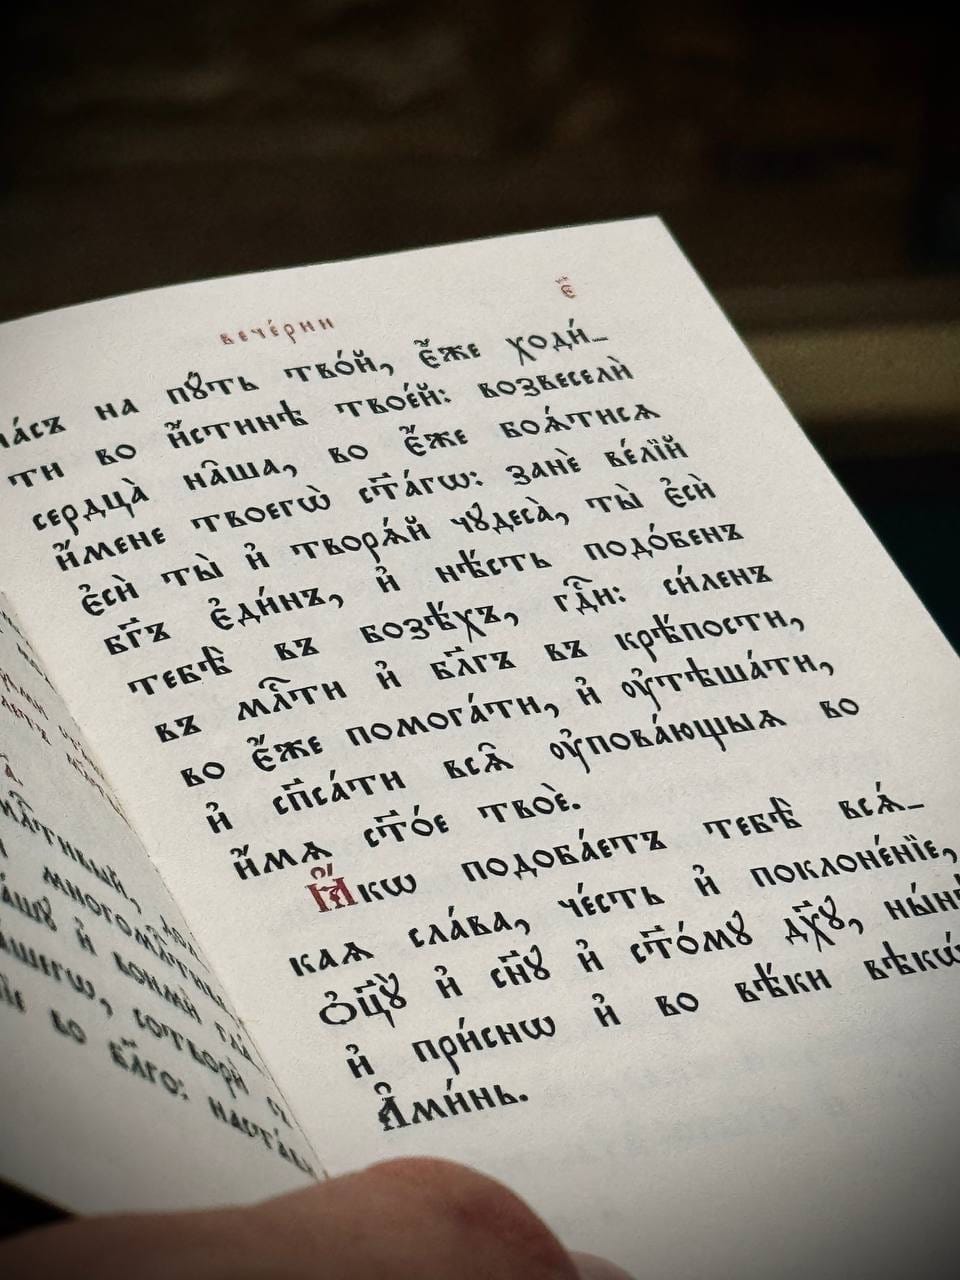 вече́рни
є҃
на́съ на пꙋ́ть тво́й, є҆́же ходи́-
ти во и҆́стинѣ твое́й: возвеселѝ
сердца̀ на̑ша, во є҆́же боѧ́тисѧ
и҆́мене твоегѡ̀ ст҃а́гѡ: занѐ ве́лїй
є҆сѝ ты̀ и҆ творѧ́й чꙋдеса̀, ты̀ є҆сѝ
бг҃ъ є҆ди́нъ, и҆ нѣ́сть подо́бенъ
тебѣ̀ въ возѣ́хъ, гдⷭ҇и: си́ленъ
въ млⷭ҇ти и҆ бл҃гъ въ крѣ́пости,
во є҆́же помога́ти, и҆ ᲂу҆тѣша́ти,
и҆ сп҃са́ти всѧ̑ ᲂу҆пова́ющыѧ во
и҆́мѧ ст҃о́е твоѐ.
Ꙗ҆́кѡ подоба́етъ тебѣ̀ всѧ́-
каѧ сла́ва, че́сть и҆ поклоне́нїе,
Ѻ҆ц҃ꙋ̀ и҆ сн҃ꙋ и҆ ст҃о́мꙋ дх҃ꙋ, ны́нѣ
и҆ при́снѡ и҆ во вѣ́ки вѣкѡ́въ
А҆ми́нь.
млⷭ҇тивый,
многомлⷭ҇тиве
и҆ вонмѝ
сотворѝ съ
во бл҃го: наста́ви